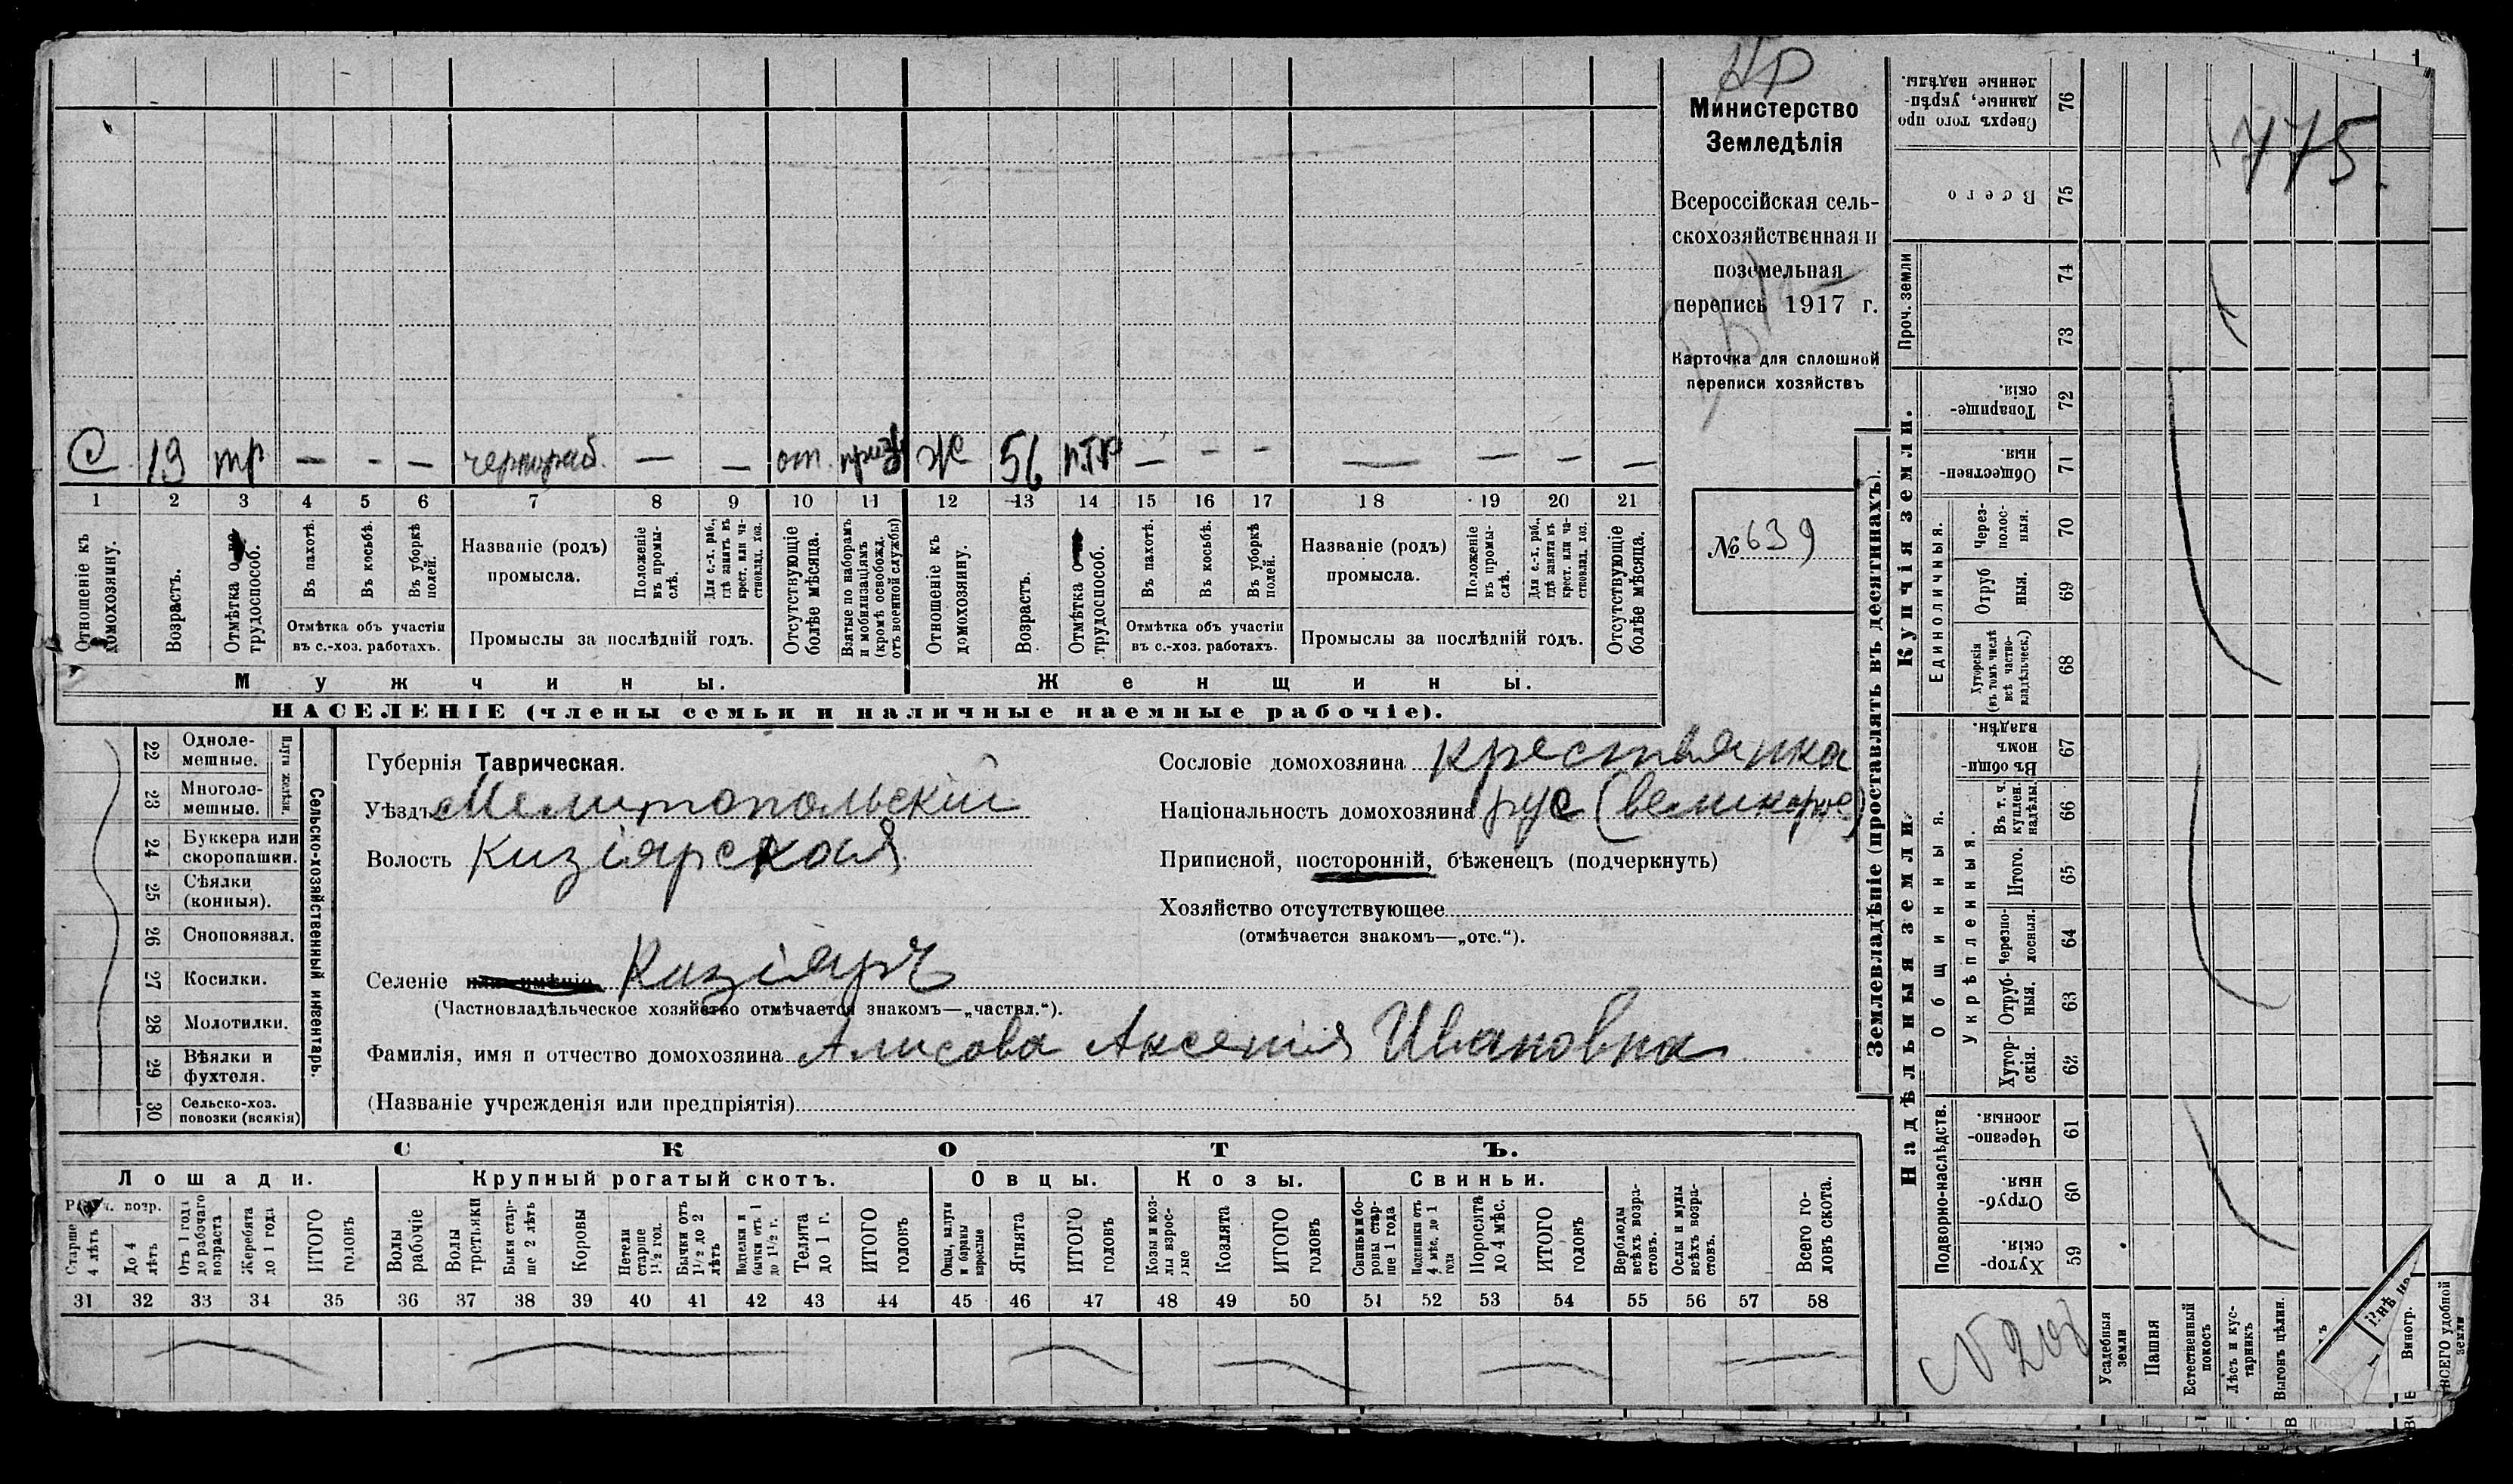 НР
Министерство
Земледѣлія
Всероссійская сель-
скохозяйственная и
поземельная
перепись 1917 г.
Карточка для сплошной
переписи хозяйствъ
№ 639
С 19 тр — - — чернораб. — — от. приз Ж 56 п.тр — - - — — — —
1 2 3 4 5 6 7 8 9 10 11 12 13 14 15 16 17 18 19 20 21
Отношеніе къ домохозяину.
Возрастъ.
Отмѣтка о трудоспособ.
Въ пахотѣ.
Въ косьбѣ.
Въ уборкѣ полей.
Отмѣтка объ участіи
въ с.-хоз. работахъ.
Названіе (родъ)
промысла.
Положеніе въ промы-слѣ.
Для с.-х. раб., гдѣ занятъ въ крест. или ча-стновлад. хоз.
Промыслы за послѣдній годъ.
Отсутствующіе болѣе мѣсяца.
Взятые по наборамъ и мобилизаціямъ (кромѣ освобожд. отъ военной службы)
Отношеніе къ домохозяину.
Возрастъ.
Отмѣтка о трудоспособ.
Въ пахотѣ.
Въ косьбѣ.
Въ уборкѣ полей.
Отмѣтка объ участіи
въ с.-хоз. работахъ.
Названіе (родъ)
промысла.
Положеніе въ промы-слѣ.
Для с.-х. раб., гдѣ занята въ крест. или ча-стновлад. хоз.
Промыслы за послѣдній годъ.
Отсутствующіе болѣе мѣсяца.
Мужчины. Женщины.
НАСЕЛЕНІЕ (члены семьи и наличные наемные рабочіе).
Сельско-хозяйственный инвентарь.
22 Одноле-мешные.
23 Многоле-мешные.
24 Буккера или скоропашки.
25 Сѣялки (конныя).
26 Сноповязал.
27 Косилки.
28 Молотилки.
29 Вѣялки и фухтеля.
30 Сельско-хоз. повозки (всякія)
Губернія Таврическая.
Уѣздъ Мелитопольскій
Волость Кизіярская
Селеніе или имѣніе Кизіяръ
(Частновладѣльческое хозяйство отмѣчается знакомъ—„частвл.“).
Фамилія, имя и отчество домохозяина Алисова Аксенія Ивановна
(Названіе учрежденія или предпріятія)
Сословіе домохозяина крестьянка
Національность домохозяина рус (великорос)
Приписной, посторонній, бѣженецъ (подчеркнуть)
Хозяйство отсутствующее
(отмѣчается знакомъ—„отс.“).
СКОТЪ.
Лошади. Крупный рогатый скотъ. Овцы. Козы. Свиньи.
Старше 4 лѣтъ
До 4 лѣтъ
Отъ 1 года до рабочаго возраста
Жеребята до 1 года
ИТОГО головъ
Волы рабочіе
Волы третьяки
Быки стар-ше 2 лѣтъ
Коровы
Нетели старше 1½ год.
Бычки отъ 1½ до 2 лѣтъ
Телки и бычки отъ 1 до 1½ г.
Телята до 1 г.
ИТОГО головъ
Овцы, валухи и бараны взрослые
Ягнята
ИТОГО головъ
Козы и коз-лы взрос-лые
Козлята
ИТОГО головъ
Свиньи бо-ровы стар-ше 1 года
Подсвинки отъ 4 мѣс. до 1 года
Поросята до 4 мѣс.
ИТОГО головъ
Верблюды всѣхъ возра-стовъ.
Ослы и мулы всѣхъ возра-стовъ.
Всего го-ловъ скота.
31 32 33 34 35 36 37 38 39 40 41 42 43 44 45 46 47 48 49 50 51 52 53 54 55 56 57 58
Землевладѣніе (проставлять въ десятинахъ).
Надѣльныя земли.
Купчія земли.
Проч. земли
Подворно-наслѣдств.
Общинныя.
Укрѣпленныя.
Единоличныя.
76 Сверхъ того про данные, укрѣп-ленные надѣлы.
75 Всего
74
73
72 Товарище-скія.
71 Обществен-ныя.
70 Через-полос-ныя.
69 Отруб ныя.
68 Хуторскія (въ томъ числѣ всѣ частно-владѣльческ.)
67 Въ общи-номъ владѣн.
66 Въ т. ч. куплен. надѣлы.
65 Итого.
64 Черезпо-лосныя.
63 Отруб-ныя.
62 Хутор-скія.
61 Черезпо-лосныя.
60 Отруб-ныя.
59 Хутор-скія.
775.
Усадебныя земли
Пашня
Естественный покосъ
Лѣсъ и кус-тарникъ
Выгонъ цѣлин.
Виногр.
ВСЕГО удобной земли